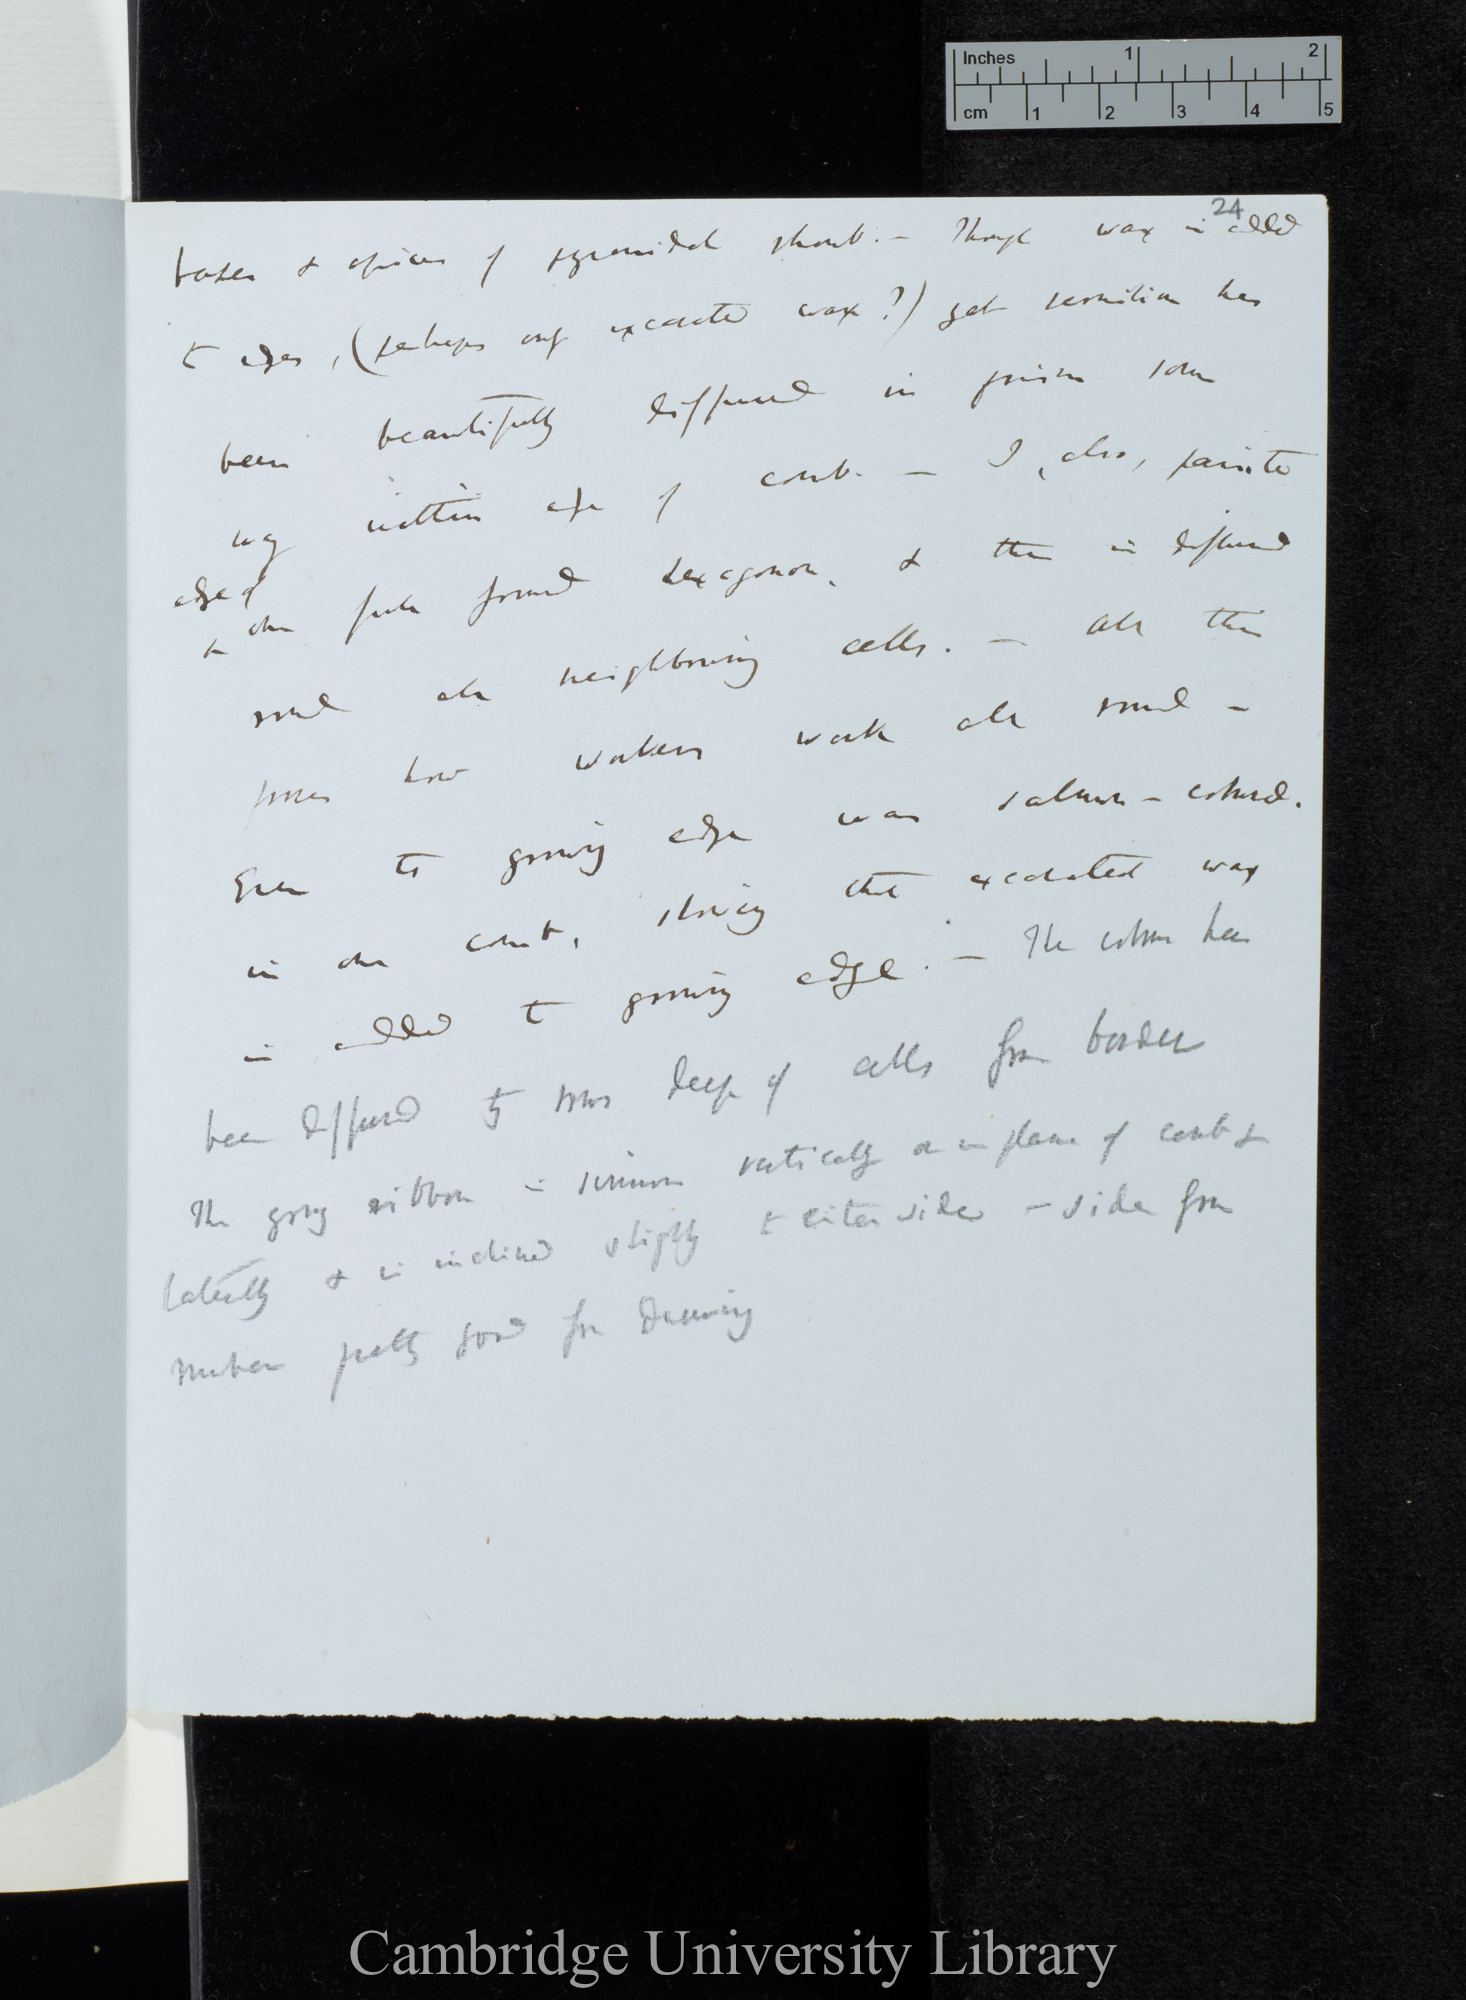 Inches 1 2
cm 1 2 3 4 5
24
bases & apices of pyramidal - Though wax is added
to edges, (perhaps only excavated wax?) yet vermilion has
been beautifully diffused in prism some
way within edge of comb. - I, also, painted
edge of
one fully formed hexagon, & this is diffused
round all neighbouring cells. - All this
proves how workers work all round -
Even to growing edge was salmon-coloured.
in one comb, showing that excavated wax
is added to growing edge. - The colour has
been diffused rows deep of cells from border
The grey ribbon is sinuous vertically or in plane of comb &
laterally & is inclined slightly to either side - side from
number pretty good for Drawing
Cambridge University Library